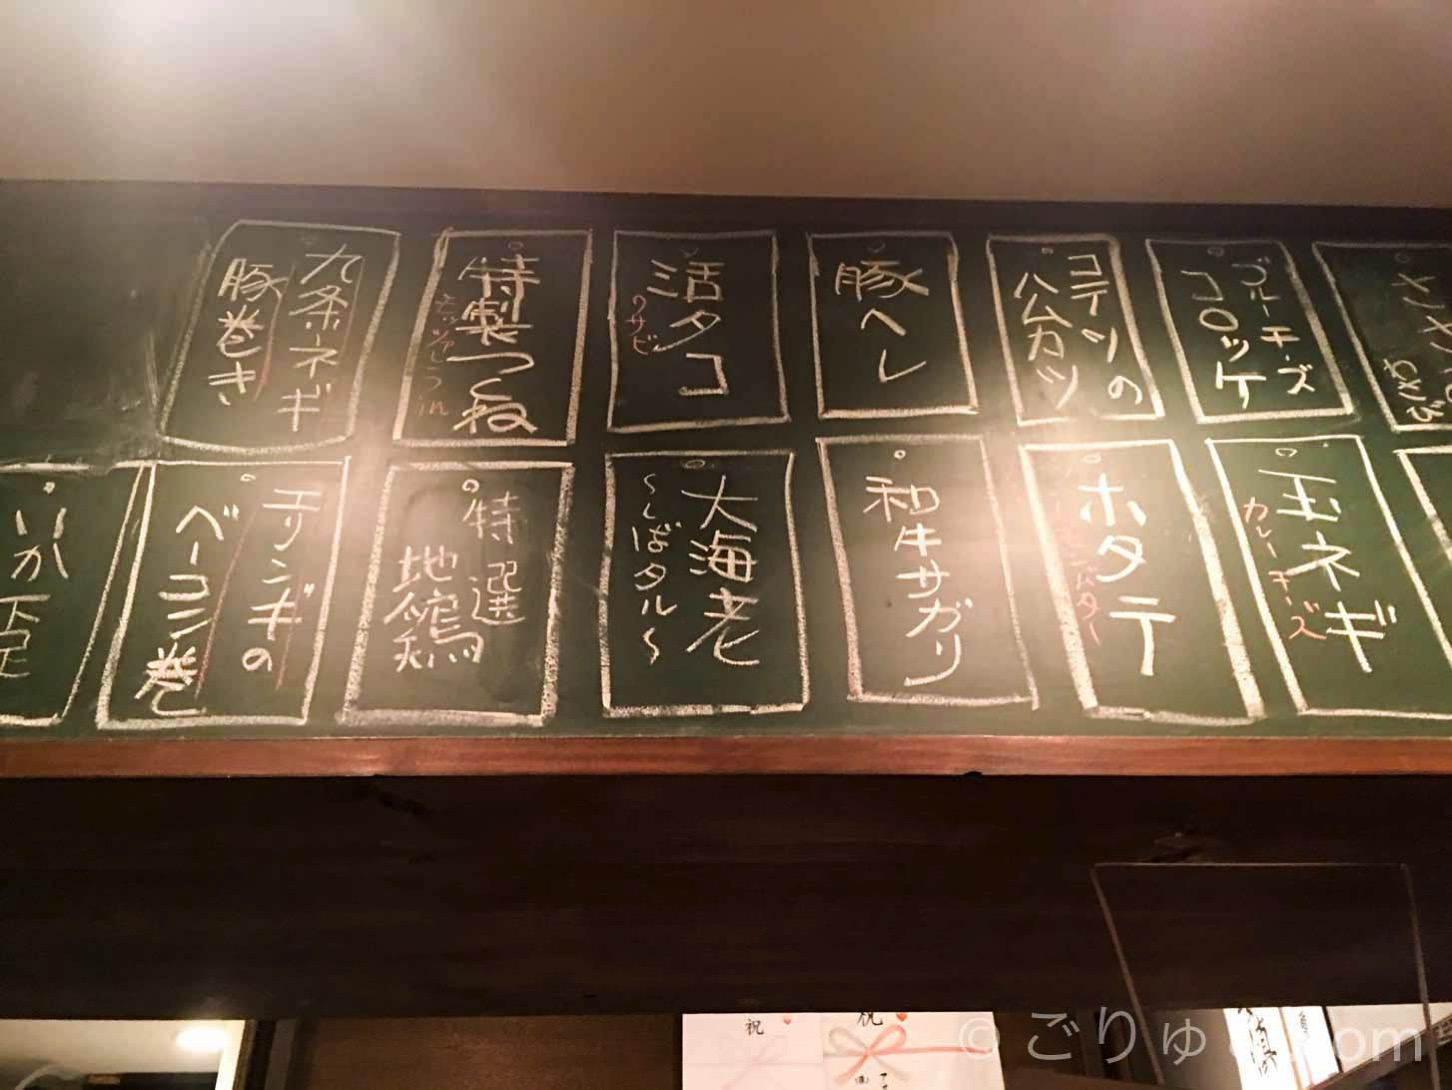 ささみ
わさび
ブルーチーズ
コロッケ
コテツの
ハムカツ
豚ヘレ
活タコ
ワサビ
特製つくね
九条ネギ
豚巻き
玉ネギ
カレーチーズ
ホタテ
和牛サガリ
大海老
〜しばタル〜
特選
地鶏
エリンギの
ベーコン巻
いか下足
祝
祝
© ごりゅ
om